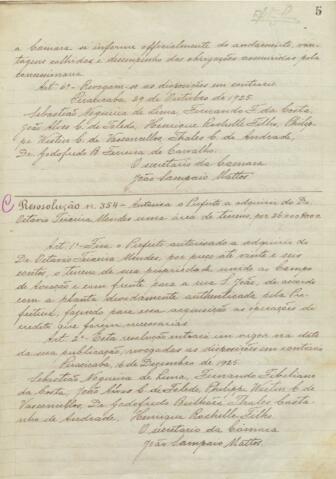 5
a Camara se informe officialmente do andamento, van-
tagens colhidas e desempenho das obrigações assumidas pela
concessionaria.
Art. 6º - Revogam-se as disposições em contrario
Piracicaba, 29 de Outubro de 1925.
Sebastião Nogueira de Lima, Fernando F. da Costa,
João Alves C. de Toledo, Henrique Rochelle Filho, Philip-
pe Westin C. de Vasconcellos, Thales C. de Andrade,
Dr. Godofredo B. Ferreira de Carvalho.
O secretario da Camara
João Sampaio Mattos
Resolução n. 354 - Autorisa o Prefeito a adquirir do Dr.
Octavio Teixeira Mendes uma área de terreno, por 26:000$000
Art. 1º - Fica o Prefeito autorisado a adquirir do
Dr. Octavio Teixeira Mendes, por preço até vinte e seis
contos, o terreno de sua propriedade unido ao Campo
de Aviação e com frente para a rua S. João, de accordo
com a planta devidamente authenticada pela Pre-
feitura, fazendo para essa acquisição as operações de
credito que forem necessarias
Art. 2º - Esta resolução entrará em vigor na data
da sua publicação, revogadas as disposições em contrario
Piracicaba, 6 de Dezembro de 1925.
Sebastião Nogueira de Lima, Fernando Febeliano
da Costa, João Alves C. de Toledo, Philippe Westin C. de
Vasconcellos, Dr. Godofredo Bulhões, Thales Casta-
nho de Andrade, Henrique Rochelle Filho.
O secretario da Câmara
João Sampaio Mattos.